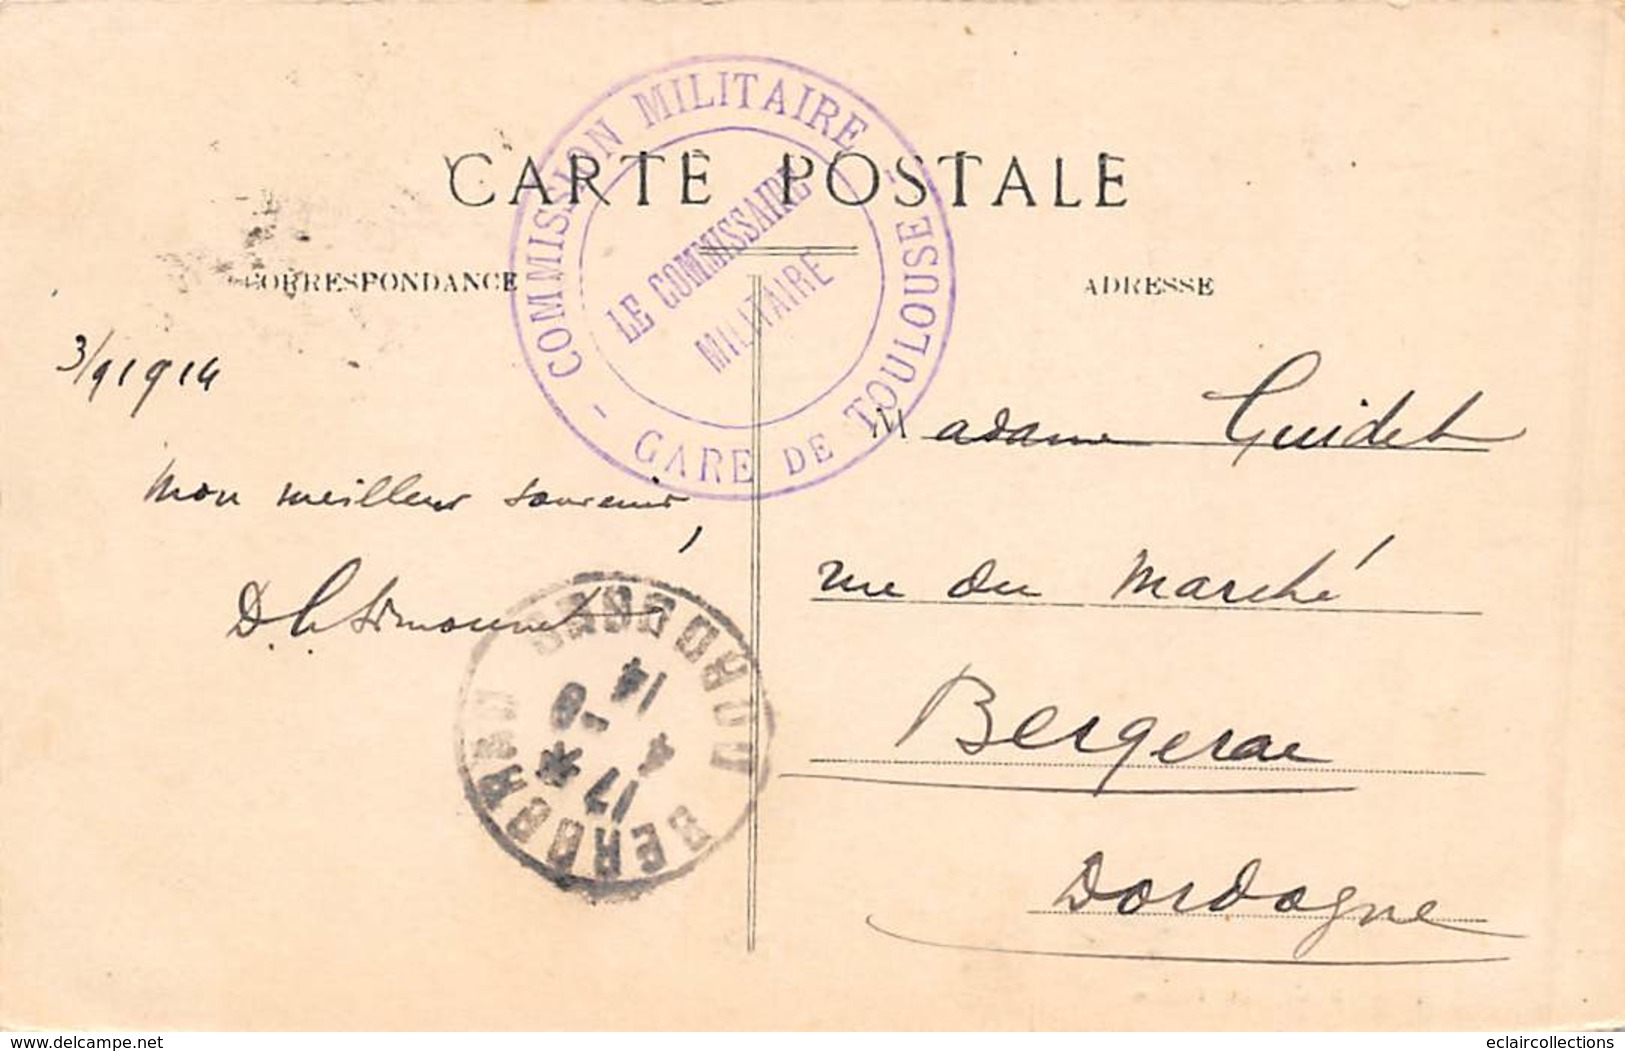 CARTE POSTALE
COMMISSION MILITAIRE
- GARE DE TOULOUSE -
LE COMMISSAIRE
MILITAIRE
CORRESPONDANCE
ADRESSE
3/9 1914
Mon meilleur souvenir,
Madame Guidet
rue du Marché
Bergerac
Dordogne
BERGERAC DORDOGNE
17 * 4 - 9 14
www.delcampe.net
eclaircollections